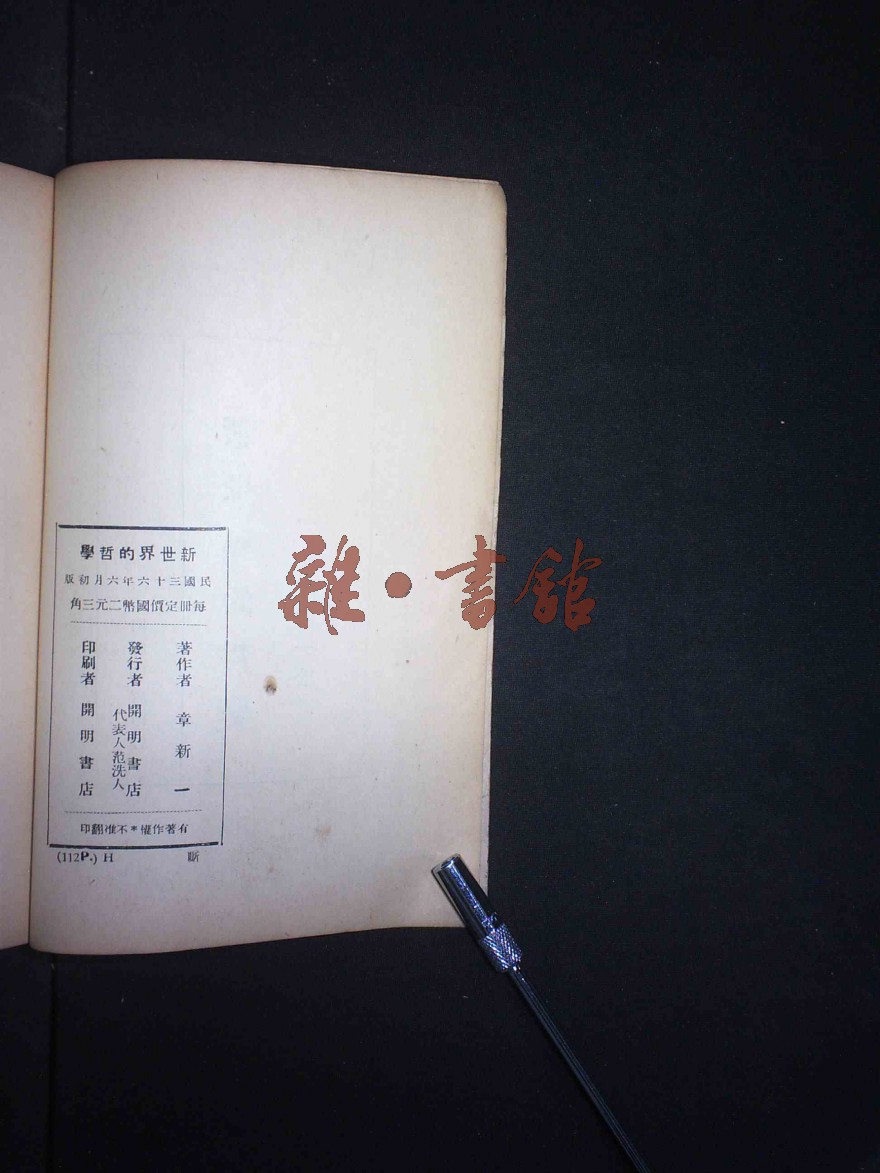 新世界的哲學
民國三十六年六月初版
每冊定價國幣二元三角
著作者 章新一
發行者 開明書店
代表人范洗人
印刷者 開明書店
有著作權*不准翻印
(112P.) H
雜·書館